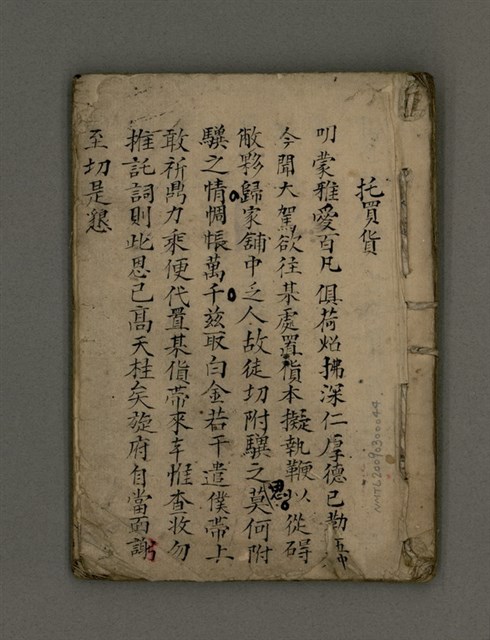 托買貨
叨蒙雅愛百凡俱荷炤拂深仁厚德已勒五中
今聞大駕欲往某處置貨本擬執鞭以從碍
敝夥歸家舖中乏人故徒切附驥之思莫何附
驥之情惆悵萬千茲取白金若干遣僕帶上
敢祈鼎力乘便代置某貨帶來幸惟查收勿
推託詞則此恩已高天柱矣旋府自當面謝
至切是懇
NMTL20090300044